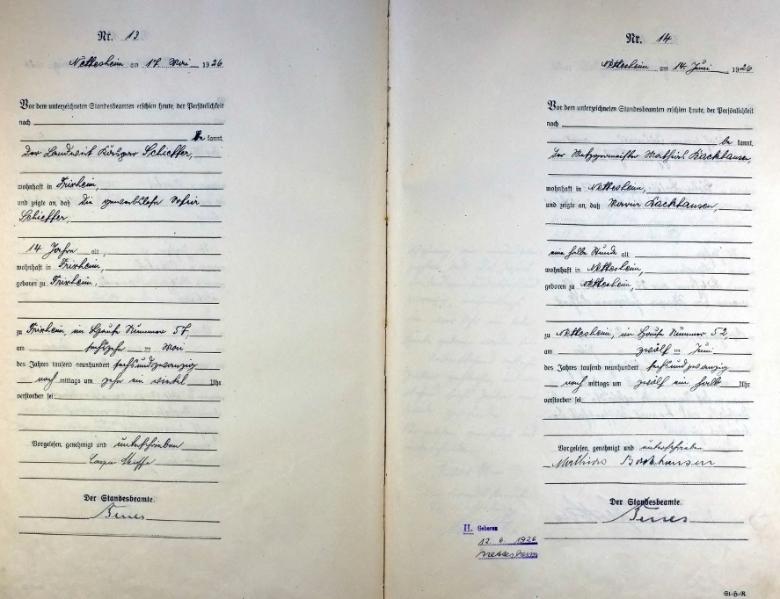 Nr. 13
Nettesheim am 17. Mai 1926
Vor dem unterzeichneten Standesbeamten erschien heute, der Persönlichkeit
nach
be kannt,
der Landwirt Schieffer,
wohnhaft in Frixheim,
und zeigte an, daß die gewerblose
Schieffer,
14 Jahre alt,
wohnhaft in Frixheim,
geboren zu Frixheim,
zu Frixheim, im Hause Nummer 57,
am sechszehn ten Mai
des Jahres tausend neunhundert sechsundzwanzig
nach mittags um zehn ein viertel Uhr
verstorben sei.
Vorgelesen, genehmigt und unterschrieben
Der Standesbeamte.
Nr. 14
Nettesheim am 14. Juni 1926
Vor dem unterzeichneten Standesbeamten erschien heute, der Persönlichkeit
nach
be kannt,
der Metzgermeister Mathias Backhausen
wohnhaft in Nettesheim,
und zeigte an, daß Backhausen,
eine halbe Stunde alt,
wohnhaft in Nettesheim,
geboren zu Nettesheim,
zu Nettesheim, im Hause Nummer 52,
am zwölf ten Juni
des Jahres tausend neunhundert sechsundzwanzig
nach mittags um zwölf ein halb Uhr
verstorben sei.
Vorgelesen, genehmigt und unterschrieben
Mathias Backhausen
Der Standesbeamte.
H. Geboren
12. 6. 1926
Nettesheim